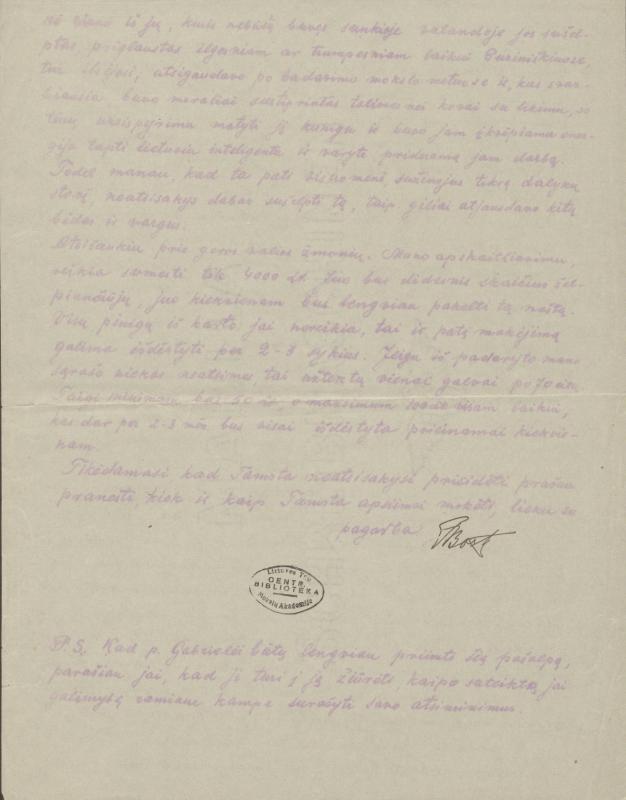 nė vieno iš jų, kuris nebūtų buvęs sunkioje valandoje jos sušelp-
ptas, priglaustas ilgesniam ar trumpesniam laikui
ten ilsėjosi, atsigaudavo po badavimo mokslo metuose ir, kas svar-
biausia buvo moraliai sustiprintas tolimesnei kovai su likimu, so
tėvų užsispyrimu matyti jį kunigu ir buvo jam įkrėpiama ener-
gija tapti lietuviu inteligentu ir varyti prideramą jam darbą.
Todėl manau, kad ta pati visuomenė sužinojus tikrą dalykų
stovį, neatsisakys dabar sušelpti tą, taip giliai atjausdavo kitų
bėdas ir vargus.
Atsišaukiu prie geros valios žmonių. Mano apskaitliavimu,
reikia sumesti tik 4000 Lt. Juo bus didesnis skaičius šel-
piančiųjų, juo kiekvienam bus lengviau pakelti tą naštą.
Visų pinigų iš karto jai nereikia, tai ir patį mokėjimą
galima išdėstyti per 2-3 sykius. Jeigu iš padaryto mano
sąrašo niekas neatsimes, tai užtektų vienai galvai po 70
Taigi minimum bus 50 o maksimum 100 visam laikui,
kas dar per 2-3 mėn. bus visai išdėstyta prieinamai kiekvie-
nam.
Tikėdamasi kad Tamsta neatsisakysi prisidėti prašau
pranešti, kiek ir kaip Tamsta apsiimi mokėti, lieku su
pagarba
Lietuvos T.S.R.
CENTR.
BIBLIOTEKA
Mokslų Akademija
P.S. Kad p. Gabrielei būtų lengviau priimti šią pašalpą,
parašiau jai, kad ji turi į ją žiūrėti, kaipo suteiktą jai
galimybę ramiame kampe surašyti savo atsiminimus.